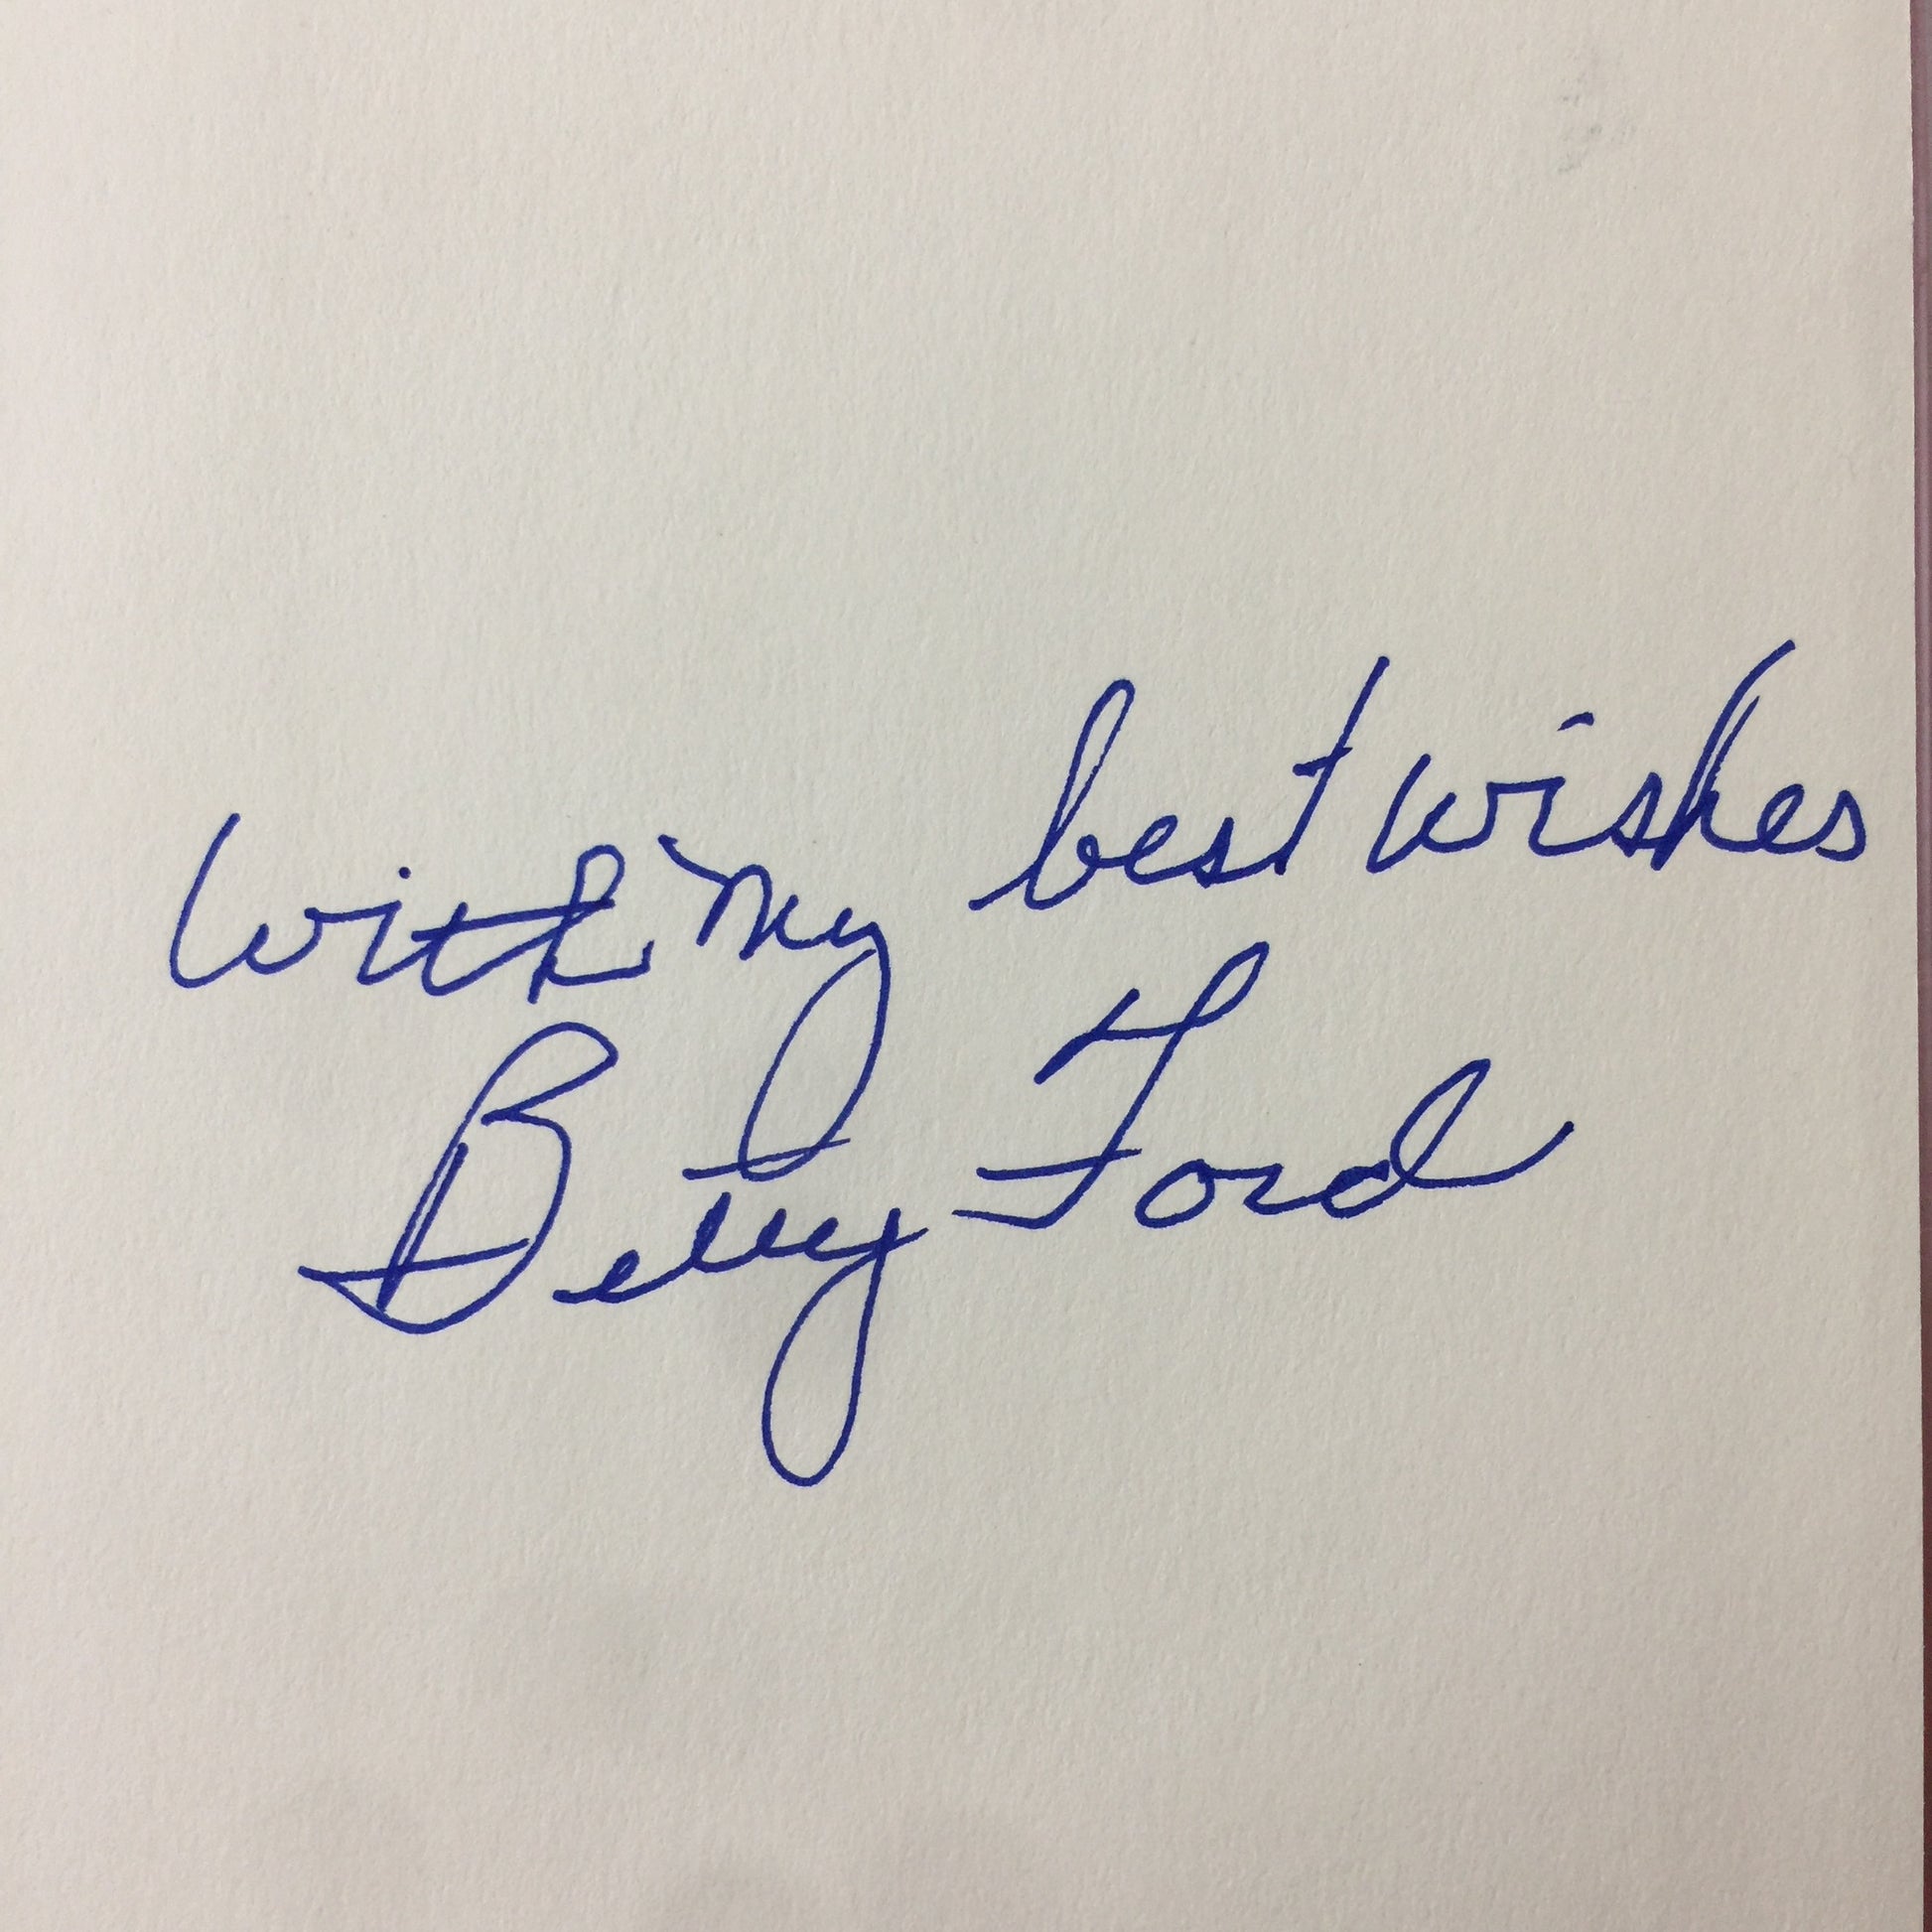 with my best wishes
Betty Ford